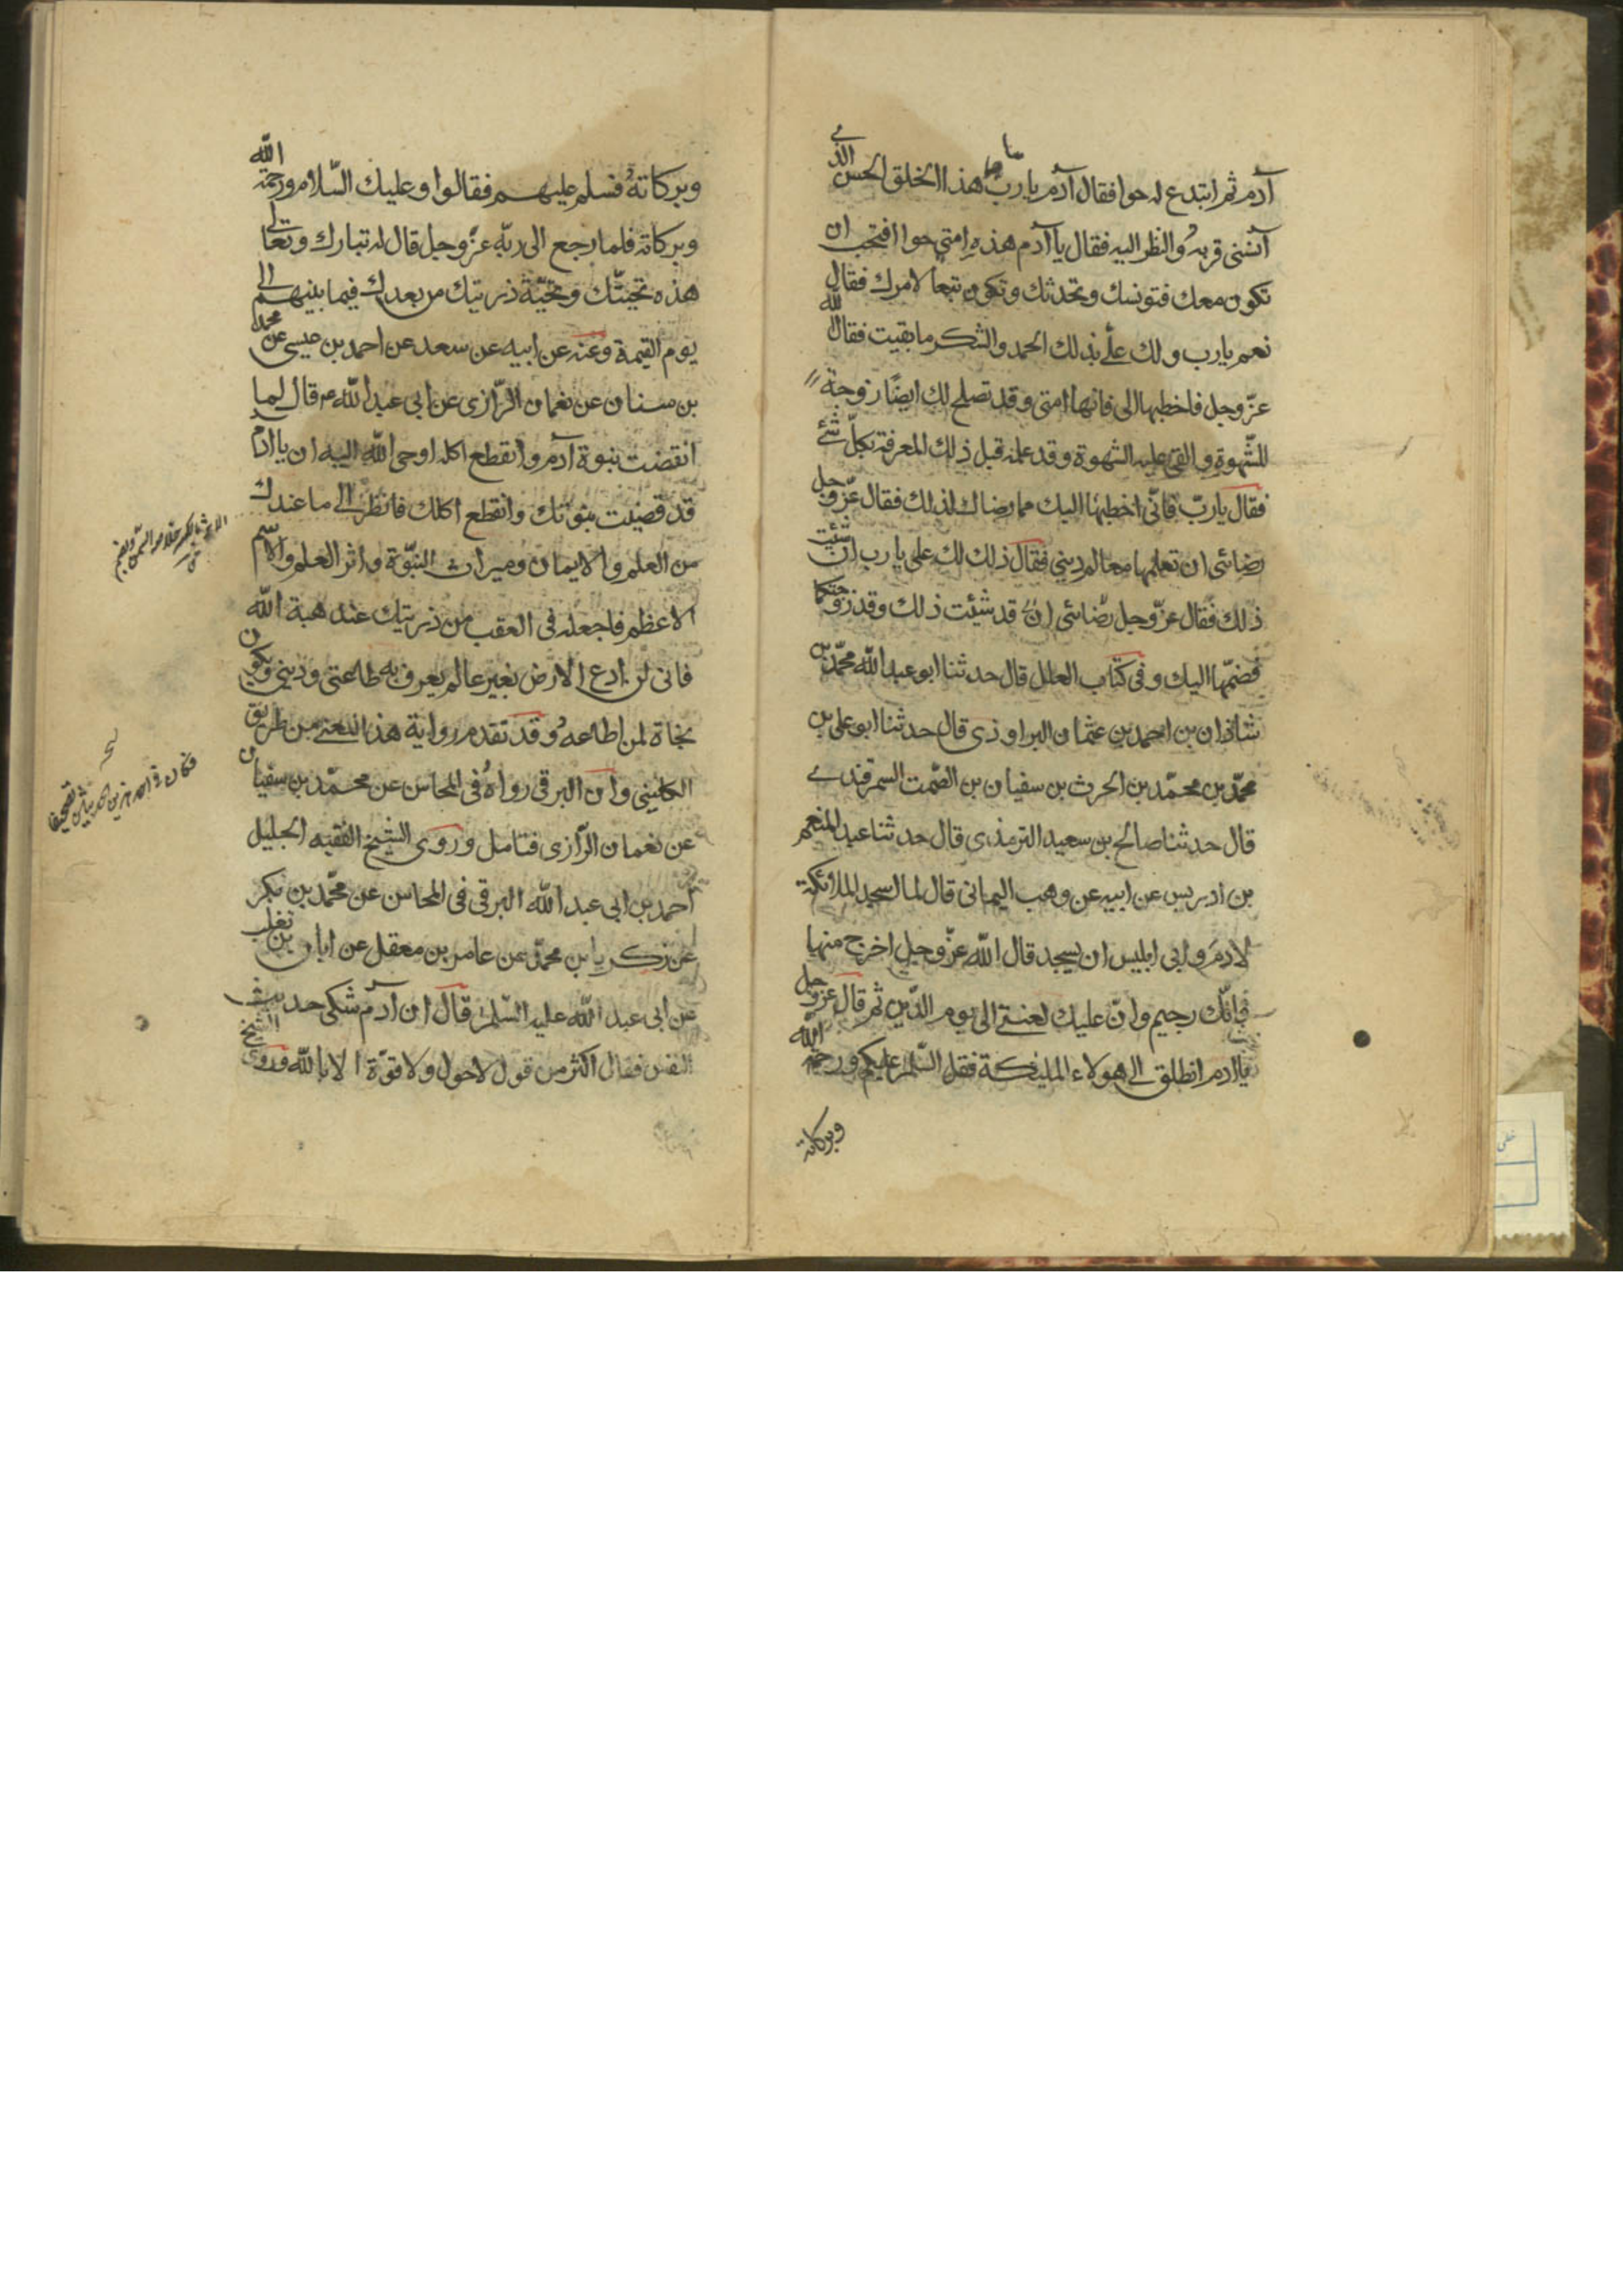 آدم ثم ابتدع له حوا فقال آدم يا رب ما هذا الخلق الحسن الذي
آنسنى قربه والنظر اليه فقال يا آدم هذه امتي حوا افتحب ان
تكون معك فتونسك وتحدثك وتكون تبعا لامرك فقال
نعم يا رب ولك علىّ بذلك الحمد والشكر ما بقيت فقال الله
عزّ وجل فاخطبها الى فانها امتى وقد تصلح لك ايضًا زوجة
للشهوة والقى عليه الشهوة وقد علمه قبل ذلك المعرفة بكلّ شئ
فقال يا ربّ فانّى اخطبها اليك مما رضاك لذلك فقال عزّ وجل
رضائى ان تعلمها معالم دينى فقال ذلك لك على يا رب ان شئت
ذلك فقال عزّ وجل رضائى ان قد شئت ذلك وقد زوجتكما
فضمّها اليك وفى كتاب العلل قال حدثنا ابو عبد الله محمّد بن
شاذان بن احمد بن عثمان البراوذى قال حدثنا ابو على بن
محمّد بن محمّد بن الحرث بن سفيان بن الصّمت السمرقندى
قال حدثنا صالح بن سعيد الترمذى قال حدثنا عبد المنعم
بن ادريس عن ابيه عن وهب اليمانى قال لما اسجد الملائكة
لادم وابى ابليس ان يسجد قال الله عزّ وجل اخرج منها
فانّك رجيم وانّ عليك لعنتى الى يوم الدّين ثم قال عزّ وجل
يا ادم انطلق الى هولاء المليكة فقل السّلم عليكم ورحمة الله
وبركاته
وبركاته فسلم عليهم فقالوا وعليك السّلام ورحمة الله
وبركاته فلما رجع الى ربّه عزّ وجل قال له تبارك وتعالى
هذه تحيتّك وتحيّة ذريتك من بعدك فيما بينهم الى
يوم القيمة وعنه عن ابيه عن سعد عن احمد بن عيسى عن محمد
بن سنان عن نعمان الرّازى عن ابى عبد الله ع قال لما
انقضت نبوة آدم وانقطع اكله اوحى الله اليه ان يا ادم
قد قضيت نبوتك وانقطع اكلك فانظر الى ما عندك
من العلم والايمان وميراث النبّوة واثر العلم والاسم
الاعظم فاجعله فى العقب من ذريتك عند هبة الله
فانى لن ادع الارض بغير عالم يعرف به طاعتى ودينى وتكون
نجاة لمن اطاعه وقد تقدم رواية هذا المعنى من طريق
الكلينى وان البرقى رواه فى المحاسن عن محمّد بن سفيان
عن نعمان الرّازى فتامل وروى الشيخ الفقيه الجليل
احمد بن ابى عبد الله البرقى فى المحاسن عن محمّد بن بكر
عن زكريا بن محمّد عن عامر بن معقل عن ابان بن تغلب
عن ابى عبد الله عليه السّلم قال ان آدم شكى حديث
النفس فقال اكثر من قول لا حول ولا قوّة الا بالله وروى الشيخ